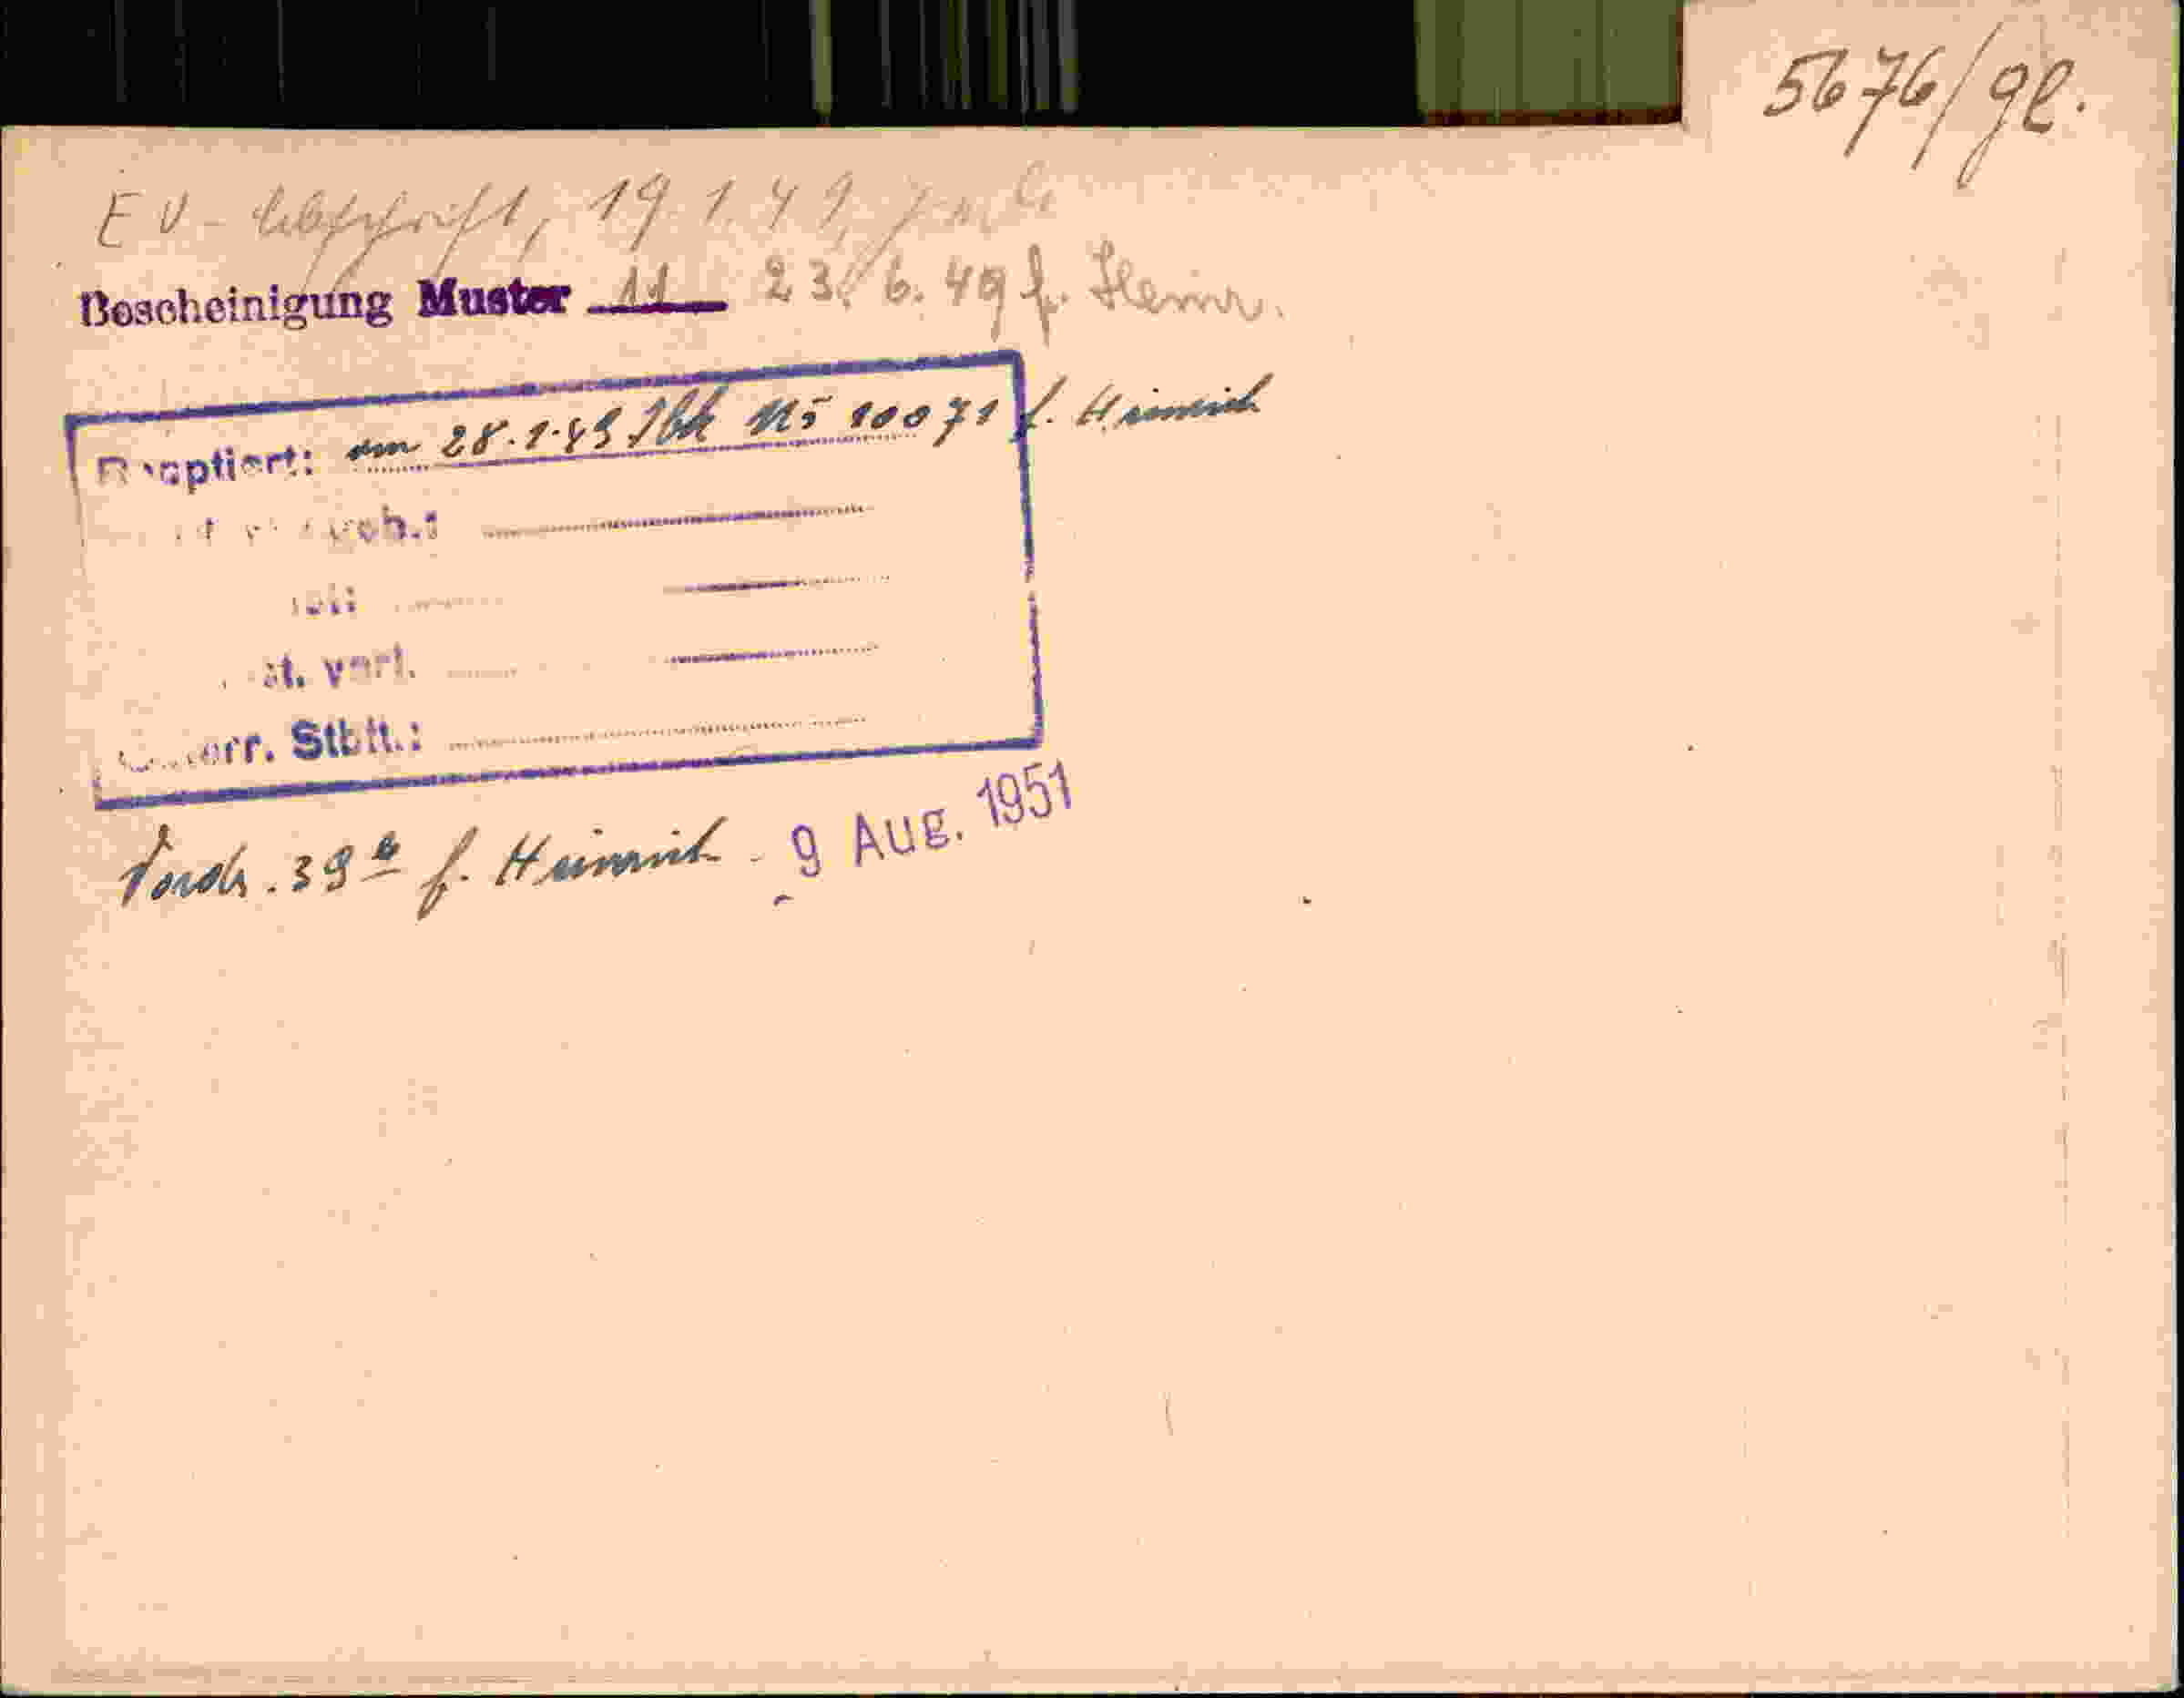 5676/gl.
EV-Abschrift, 19.1.49
Bescheinigung Muster 11 23.6.49 f. Heinr.
Reoptiert: am 28.1.49 Ibk 115 10071 f. Heinrich
Österr. Stbft.:
Vordr. 39a f. Heinrich - 9 Aug. 1951